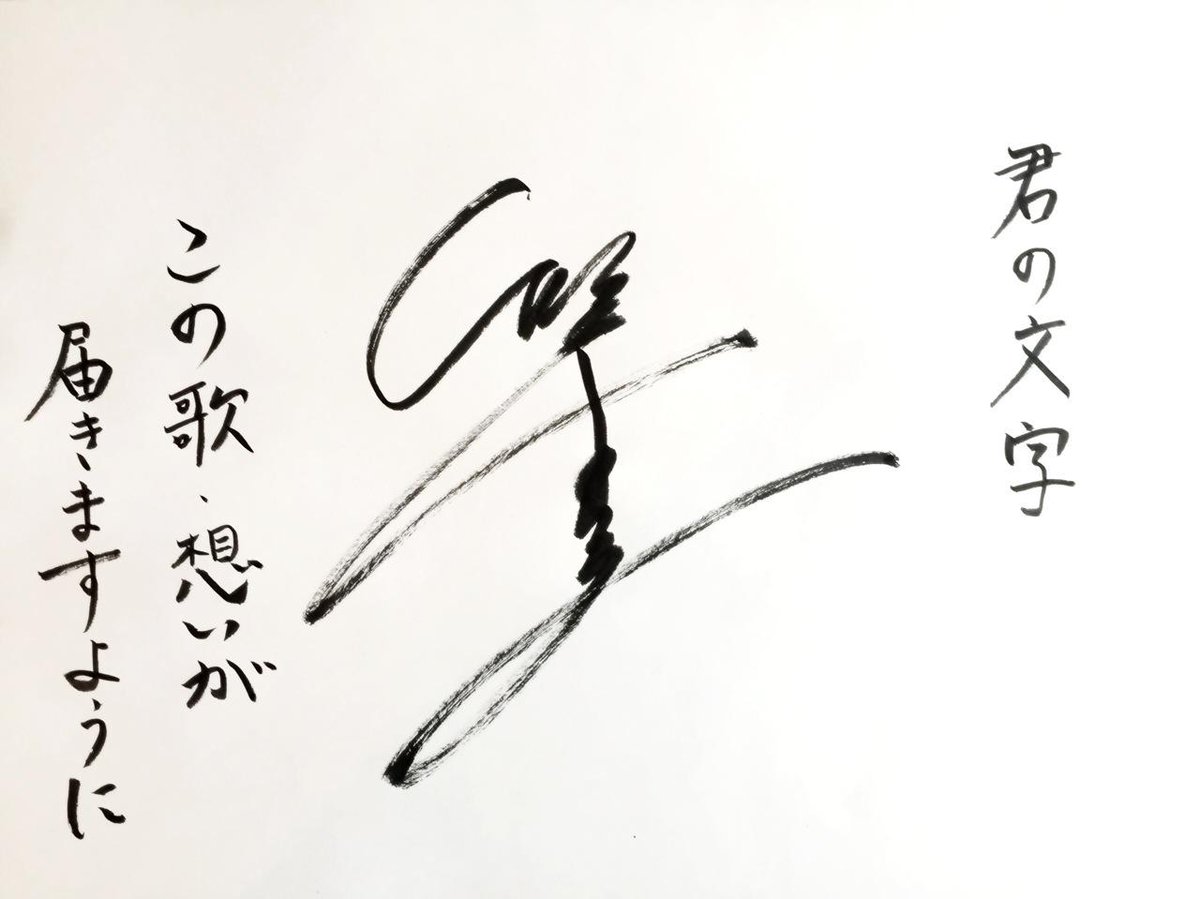 君の文字
この歌、想いが
届きますように